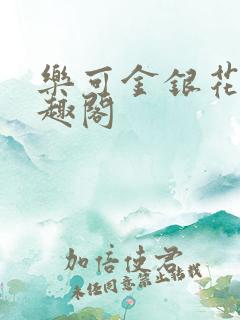 樂可金銀花
趣閣
加倍使君
未经同意禁止转载